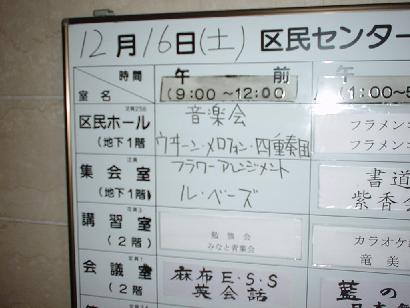 12月16日(土) 区民センター
時間 午 前 午
室名 (9:00~12:00) (1:00~5
定員256
区民ホール 音楽会 フラメン
(地下1階 ウヰーン・メロフォン・四重奏団 フラメンコ
集会室 フラワーアレンジメント 書道
(地下1階) ル・ベーズ 紫香会
講習室 勉強会 カラオケ
(2階) みなと青葉会 竜美
会議室 麻布E.S.S 藍の
(2階) 英会話